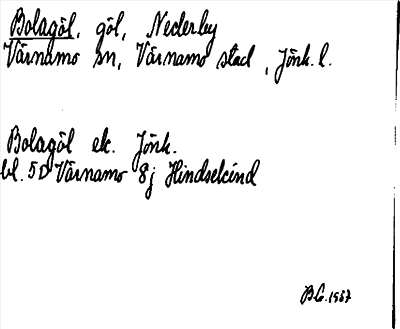 Bolagöl, göl, Nederby
Värnamo sn, Värnamo stad, Jönk. l.
Bolagöl ek. Jönk.
bl. 5D Värnamo 8j Hindsekind
B.G. 1967